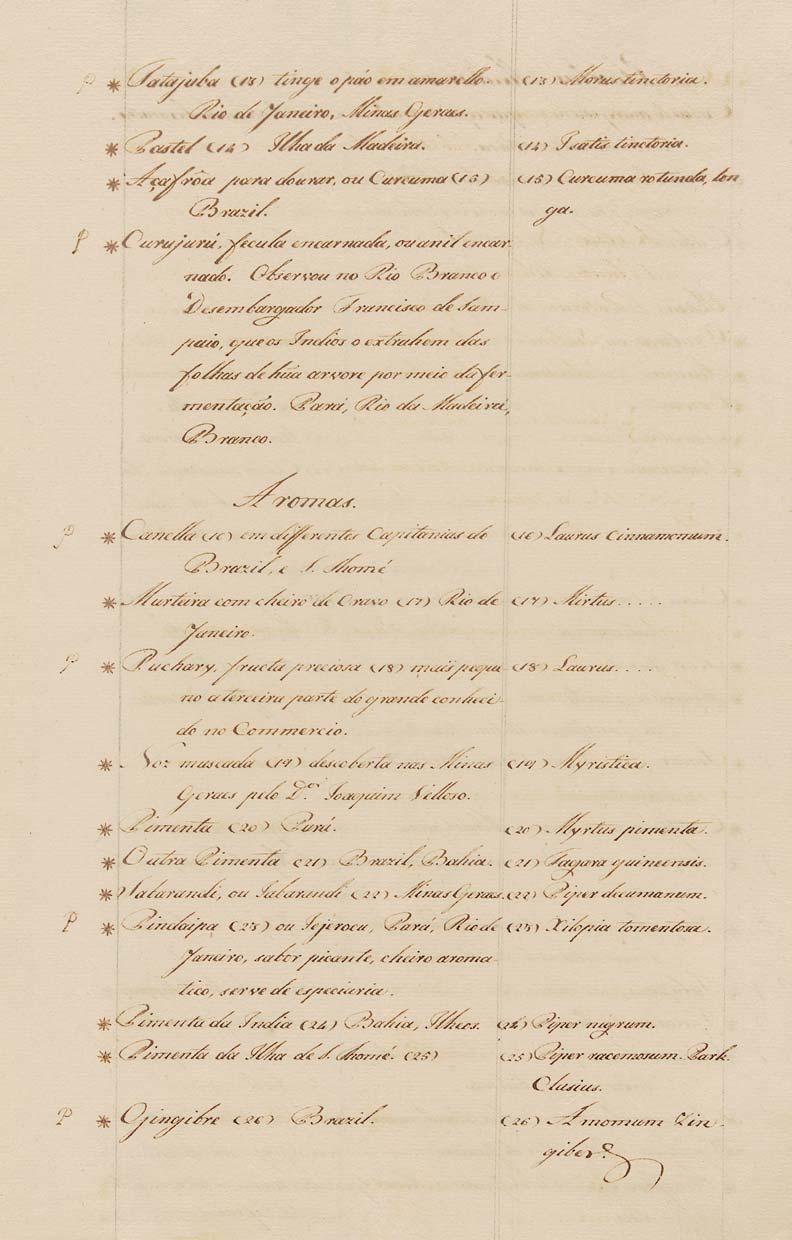 P * Tatajuba (13) tinge o páo em amarello. (13) Morus tinctoria.
Rio de Janeiro, Minas Geraes.
* Pastel (14) Ilha da Madeira. (14) Isatis tinctoria.
* Açafrôa para dourar, ou Curcuma (15) (15) Curcuma rotunda, lon
Brazil. ga.
P * Curujurú, fecula encarnada, ou anil encar-
nado. Observou no Rio Branco o
Desembargador Francisco de Sam-
paio, que os Indios o extrahem das
folhas de húa arvore por meio da fer-
mentação. Pará, Rio da Madeira,
Branco.
Aromas.
P * Canella (16) em differentes Capitanias do (16) Laurus Cinnamomum.
Brazil, e S. Thomé
* Murteira com cheiro de Cravo (17) Rio de (17) Mirtus.....
Janeiro.
P * Puchary, fructa preciosa (18) mais peque- (18) Laurus....
no a terceira parte do grande conheci-
do no Commercio.
* Noz muscada (19) descoberta nas Minas (19) Myristica.
Geraes pelo D.or Joaquim Velloso.
* Pimenta (20) Pará. (20) Myrtus pimenta.
* Outra Pimenta (21) Brazil, Bahia. (21) Fagara guineensis.
* Jabarandi, ou Jaborandi (22) Minas Geraes. (22) Piper decumanum.
P * Pindaipa (23) ou Jejerecu, Pará, Rio de (23) Xilopia tomentosa.
Janeiro, sabor picante, cheiro aroma-
tico, serve de especiaria.
* Pimenta da India (24) Bahia, Ilheos. (24) Piper nigrum.
* Pimenta da Ilha de S. Thomé. (25) (25) Piper racemosum. Park.
Clusius.
P * Gingibre (26) Brazil. (26) Amomum Zin-
giber.